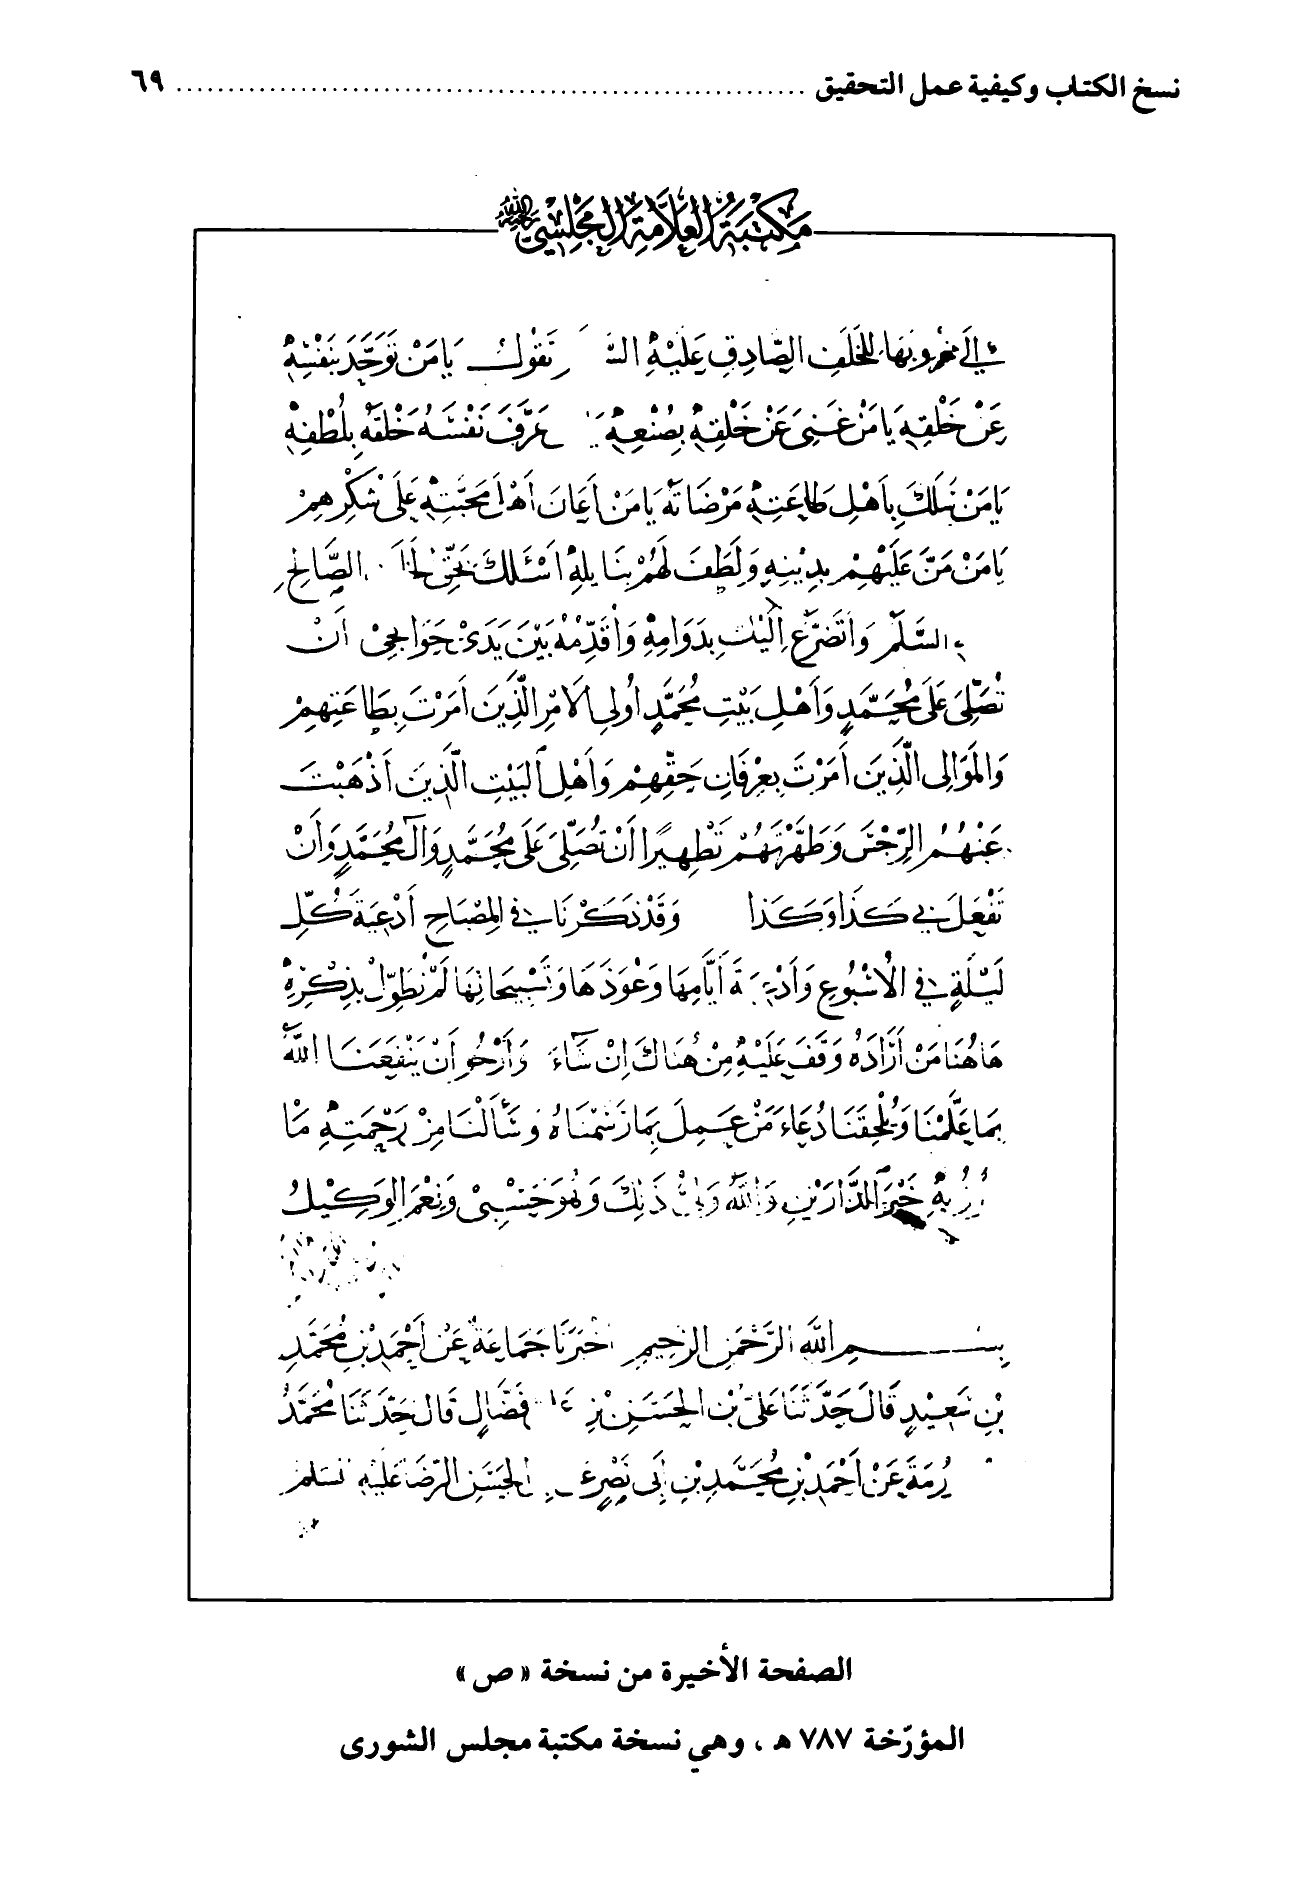 نسخ الكتاب وكيفية عمل التحقيق ........ ٦٩
مَكْتَبَةُ العَلَّامَةِ المَجْلِسِيّ
إلى غروبها للخلف الصادق عليه تقول يا من توحد بنفسه
عن خلقه يا من غني عن خلقه بصنعه عرف نفسه خلقه بلطفه
يا من سلك بأهل طاعته مرضاته يا من أعان أهل محبته على شكرهم
يا من من عليهم بدينه ولطف لهم بنايله اسئلك بحق الصالح
السلم وأتضرع إليك بدوامه وأقدمه بين يدي حوائجي أن
تصلي على محمد وأهل بيت محمد أولي الأمر الذين أمرت بطاعتهم
والموالي الذين أمرت بعرفان حقهم وأهل البيت الذين أذهبت
عنهم الرجس وطهرتهم تطهيرا أن تصلي على محمد وآل محمد وأن
تفعل بي كذا وكذا وقد ذكرنا في المصباح أدعية كل
ليلة في الأسبوع أيامها وعوذها وتسبيحاتها لم نطول بذكره
هاهنا من أراده وقف عليه من هناك إن شاء وأرجو أن ينفعنا الله
بما علمنا ويلحقنا دعاء من عمل بما رسمناه وسألنا من رحمته ما
به خير الدارين والله ولي ذلك وهو حسبي ونعم الوكيل
بسم الله الرحمن الرحيم أخبرنا جماعة عن أحمد بن محمد
بن سعيد قال حدثنا علي بن الحسن بن فضال قال حدثنا محمد
عن أحمد بن محمد بن أبي نصر الحسن الرضا عليه
الصفحة الأخيرة من نسخة « ص »
المؤرّخة ٧٨٧ هـ ، وهي نسخة مكتبة مجلس الشورى